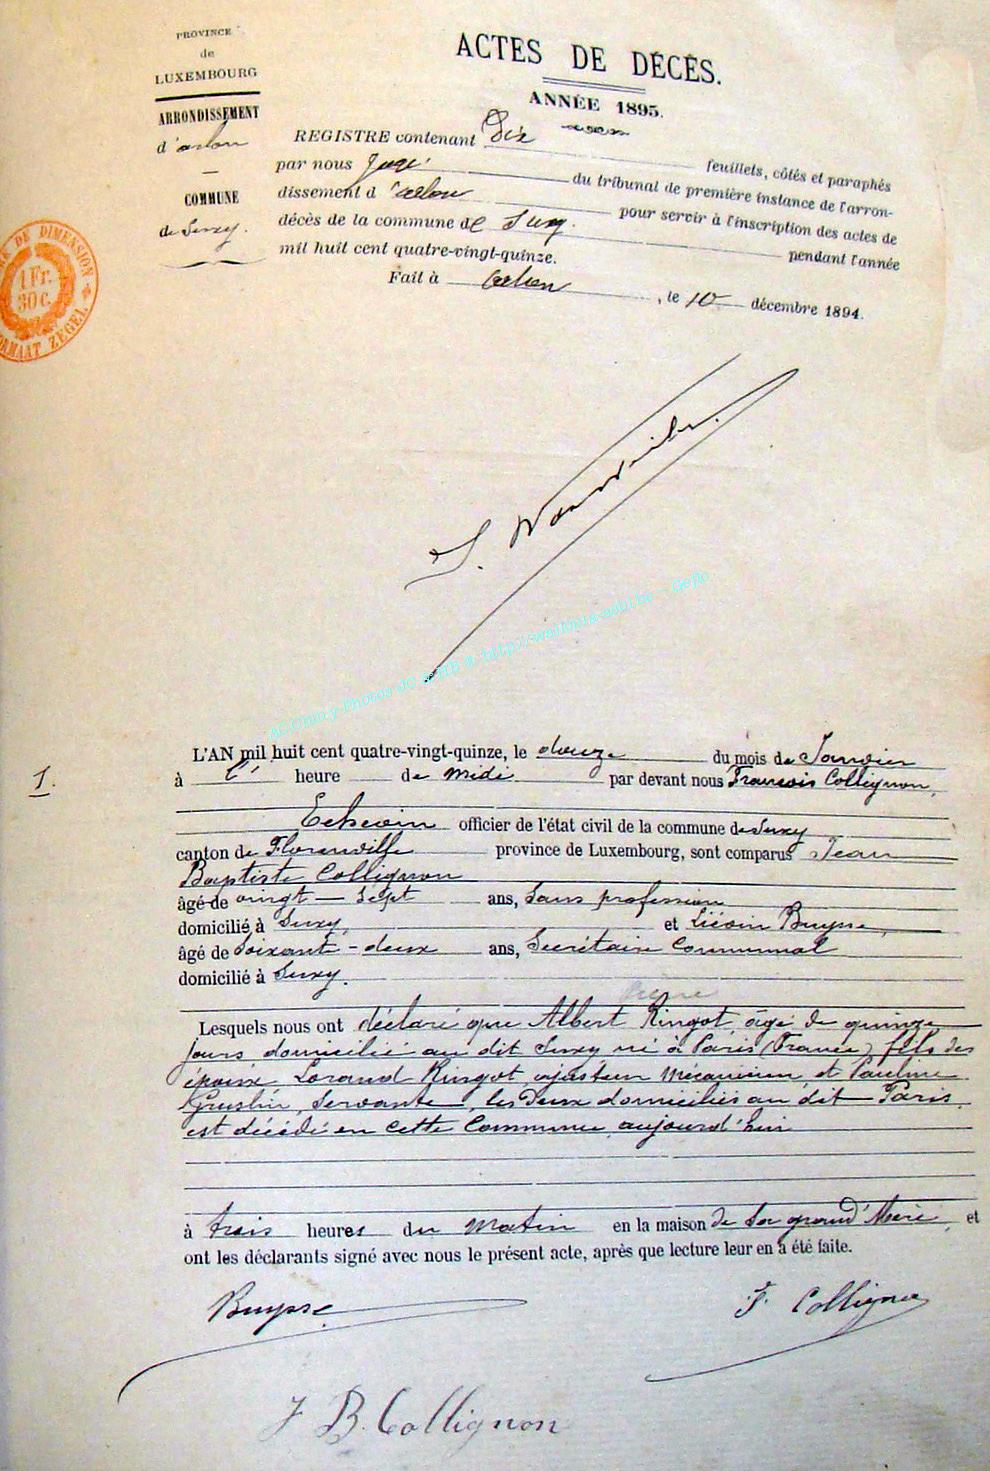 PROVINCE
de
LUXEMBOURG
ARRONDISSEMENT
d'arlon
COMMUNE
de Suxy.
ACTES DE DÉCÈS.
ANNÉE 1895.
REGISTRE contenant Dix feuillets, côtés et paraphés
par nous Juge du tribunal de première instance de l'arron-
dissement d'arlon pour servir à l'inscription des actes de
décès de la commune de Suxy. pendant l'année
mil huit cent quatre-vingt-quinze.
Fait à arlon, le 10 décembre 1894.
1 Fr.
30 c.
DE DIMENSION
ZEGEL
1.
L'AN mil huit cent quatre-vingt-quinze, le douze du mois de Janvier
à heure de midi par devant nous François Collignon,
Echevin officier de l'état civil de la commune de Suxy
canton de Florenville province de Luxembourg, sont comparus Jean
Baptiste Collignon
âgé de vingt-sept ans, sans profession
domicilié à Suxy, et Liévin Buysse,
âgé de soixante-deux ans, Secrétaire Communal
domicilié à Suxy.
Lesquels nous ont déclaré que Albert Ringot, âgé de quinze
jours domicilié au dit Suxy né à Paris (France) fils des
époux Lorand Ringot, ajusteur mécanicien et Pauline
servante, les deux domiciliés au dit Paris,
est décédé en cette Commune aujourd'hui
à trois heures du matin en la maison de Sa grand'Mère, et
ont les déclarants signé avec nous le présent acte, après que lecture leur en a été faite.
Buysse
F. Collignon
J B. Collignon